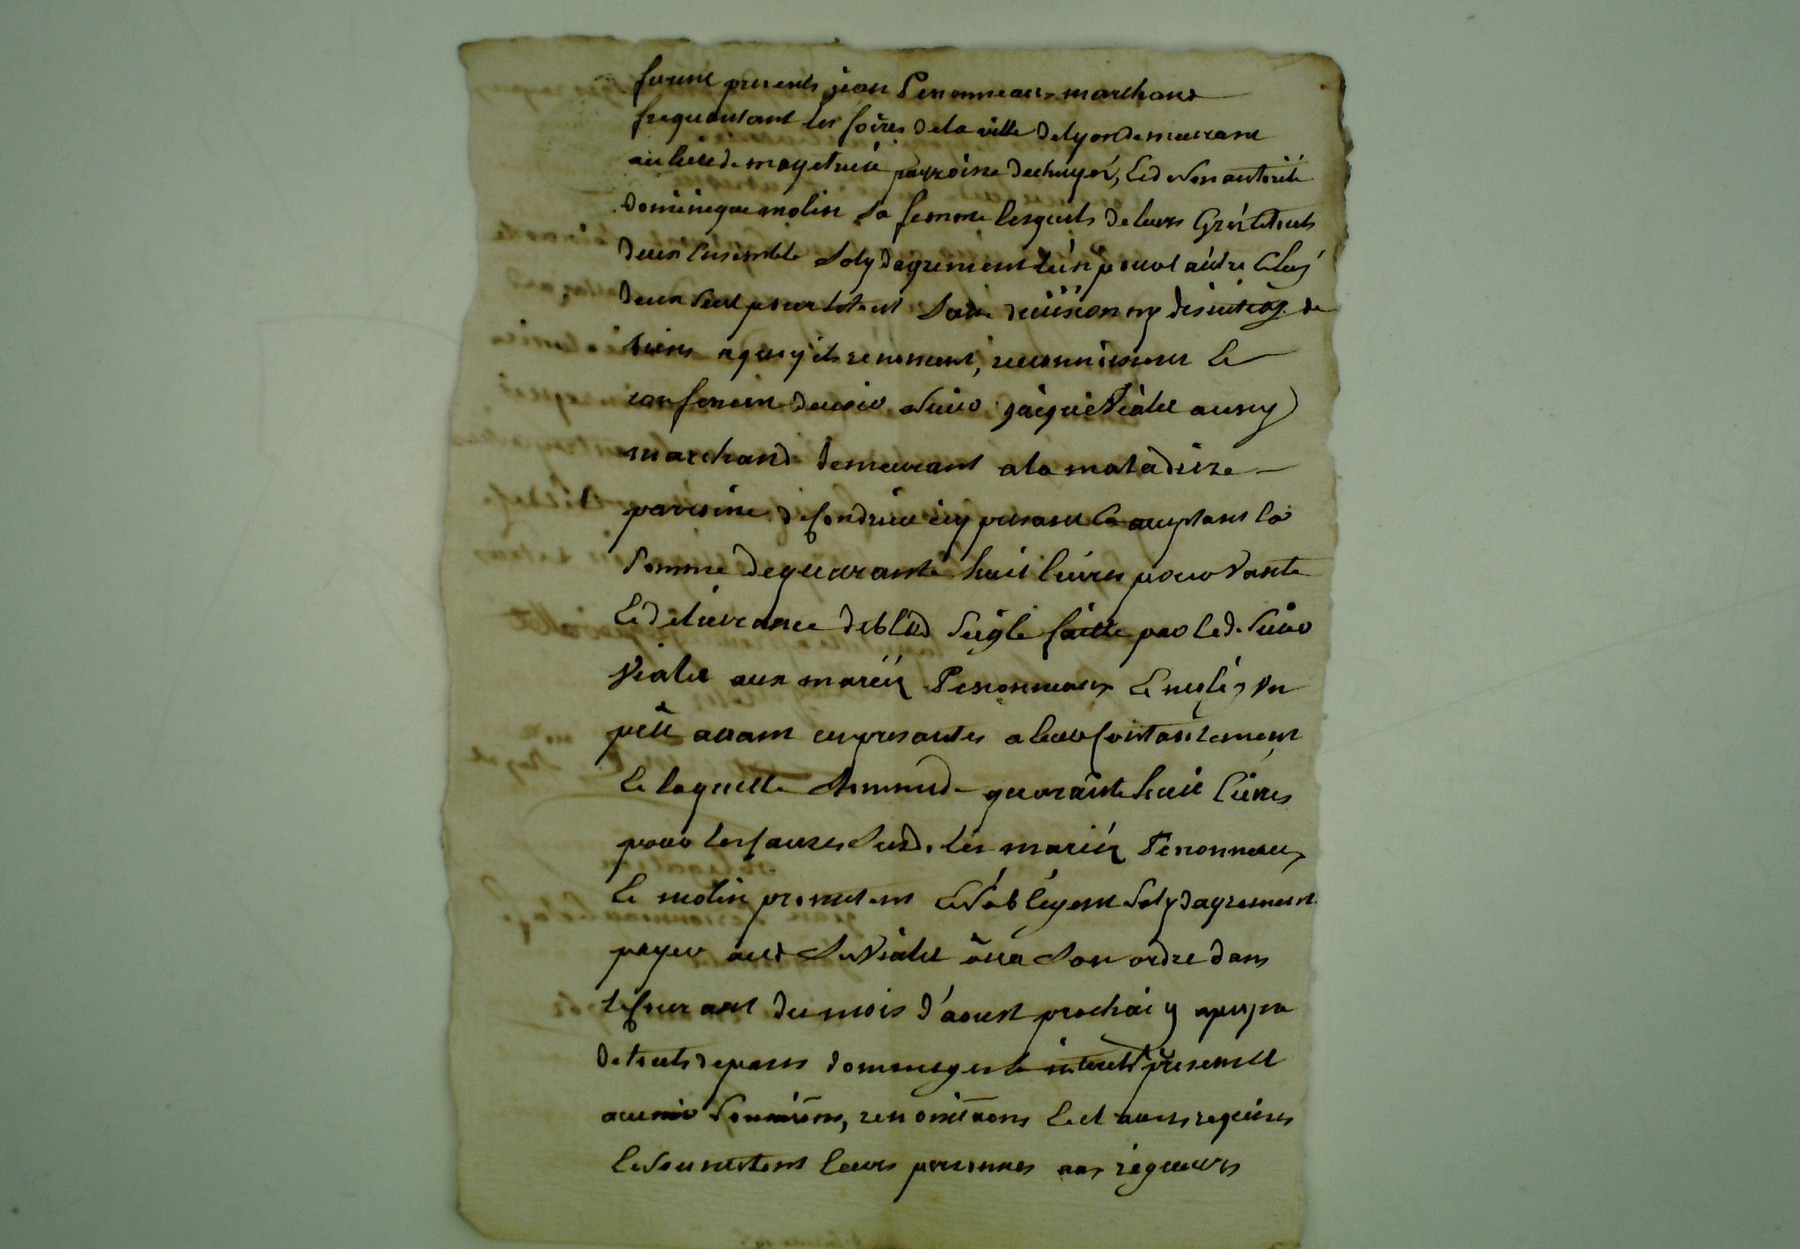 furent presents jean Peronneau marchand
frequentant les foires dela ville delyon demeurant
au lieu de parroisse et de son authorité
dominique molin sa femme lesquels de leurs gré et touts
deux ensemble solydayrement l'un pour l'autre
deux seul pour le tout sans division ny discution de
biens a quoy ils renoncent, reconnoissent et
confessent devoir a sieur jaque Vialet aussy
marchand demeurant a la maladiere
parroisse de fondrieu icy presant et acceptant la
somme de quarante huit livres pour vante
et delivrance de bled seigle faitte par led. sieur
Vialet aux mariés Peronneau et molin un
peu avant ces presantes a leur contantement
et laquelle somme de quarante huit livres
pour les causes susd. les mariés Peronneau
et molin promettent et s'obligent solydayrement
payer aud. sr Vialet ou a son ordre dans
le courant du mois d'aoust prochain a peyne
de touts depans dommages et interets presents et
avenir soumissions, renonciations et clauses requises
et soumettent leurs personnes aux rigueurs